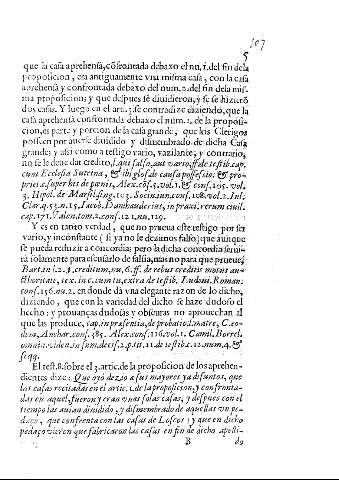 107
5
que la casa aprehensa, cõfrontada debaxo el nu. 1. del fin de la
proposicion, era antiguamente vna misma casa, con la casa
aprehensa y confrontada debaxo del num. 2. del fin de la mis-
ma proposicion; y que despues se diuidieron, y se se hizierõ
dos casas. Y luego en el art. 3. se contradize diziendo, que la
casa aprehensa confrontada debaxo el num. 1. de la proposi-
cion, es parte y porcion de la casa grande, que los Clerigos
posseen por auerse diuidido y dismembrado de dicha Casa
grande; y assi como a testigo vario, vazilante, y contrario,
no se le deue dar credito, l. qui falso, aut vario, ff. de testib. cap.
cum Ecclesia Sutrina, & ibi glos. de causa possessio. & pro-
prie c. super his de pœnis, Alex. cõs. 3. vol. 1. & cons. 105. vol.
3. Hipol. de Marsil. sing. 103. Socin. iun. cons. 128. vol. 2. Iul.
Clar. q. 53. n. 15. Iacob. Damhauderius, in praxi, rerum ciuil.
cap. 171. Valen. tom. 2. cons. 121. nu. 129.
Y es en tanto verdad, que no prueua este testigo por ser
vario, y inconstante (si ya no le dezimos falso) que aunque
se pueda reduzir a concordia; pero la dicha concordia serui-
rà solamente para escusarlo de falsa, mas no para que prueue,
Bart. in l. 2. § creditum, nu. 6. ff. de rebus creditis
thoritate, text. in c. cum tu, extra de testib. Ludoui. Roman.
cons. 156. nu. 2. en donde da vna elegante razon de lo dicho,
diziendo, que con la variedad del dicho se haze dudoso el
hecho: y prouanças dudosas y obscuras no aprouechan al
que las produce, cap. in præsentia, de probatio.
Anchar. cons. 385. Alex. cons. 116. vol. 1. Caml. Borrel.
in sum. decis. 2. p. tit. 1. de testib. c. 12. num. 4. &
seqq.
El test. 8. sobre el 3. artic. de la proposicion de los aprehen-
dientes dize: Que oyò dezir a sus mayores ya difuntos, que
las casas recitadas en el artic. 1. de la proposicion, y confronta-
das en aquel, fueron y eran vnas solas casas; y despues con el
tiempo las auian diuidido, y dismembrado de aquellas vn pe-
daço, que confrenta con las casas de Loscos; y que en dicho
pedaço vieron que fabricaron las casas en fin de dicho apelli-
B do